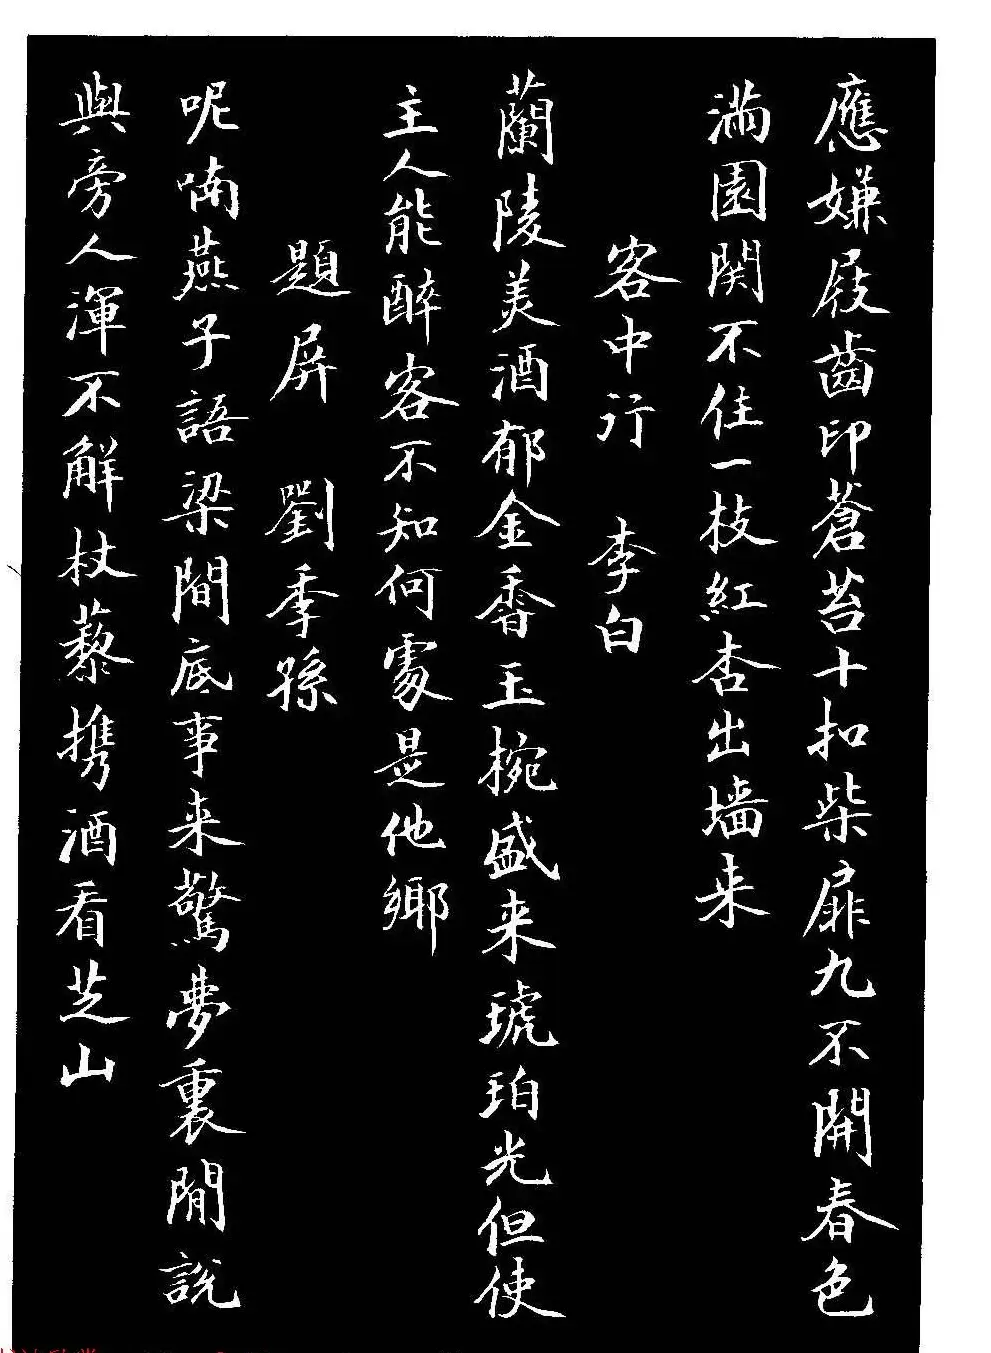 應嫌屐齒印蒼苔十扣柴扉九不開春色
滿園関不住一枝紅杏出墻来
客中行 李白
蘭陵美酒郁金香玉椀盛来琥珀光但使
主人能醉客不知何處是他鄉
題屏 劉季孫
呢喃燕子語梁間底事来驚夢裏閒説
與旁人渾不解杖藜携酒看芝山